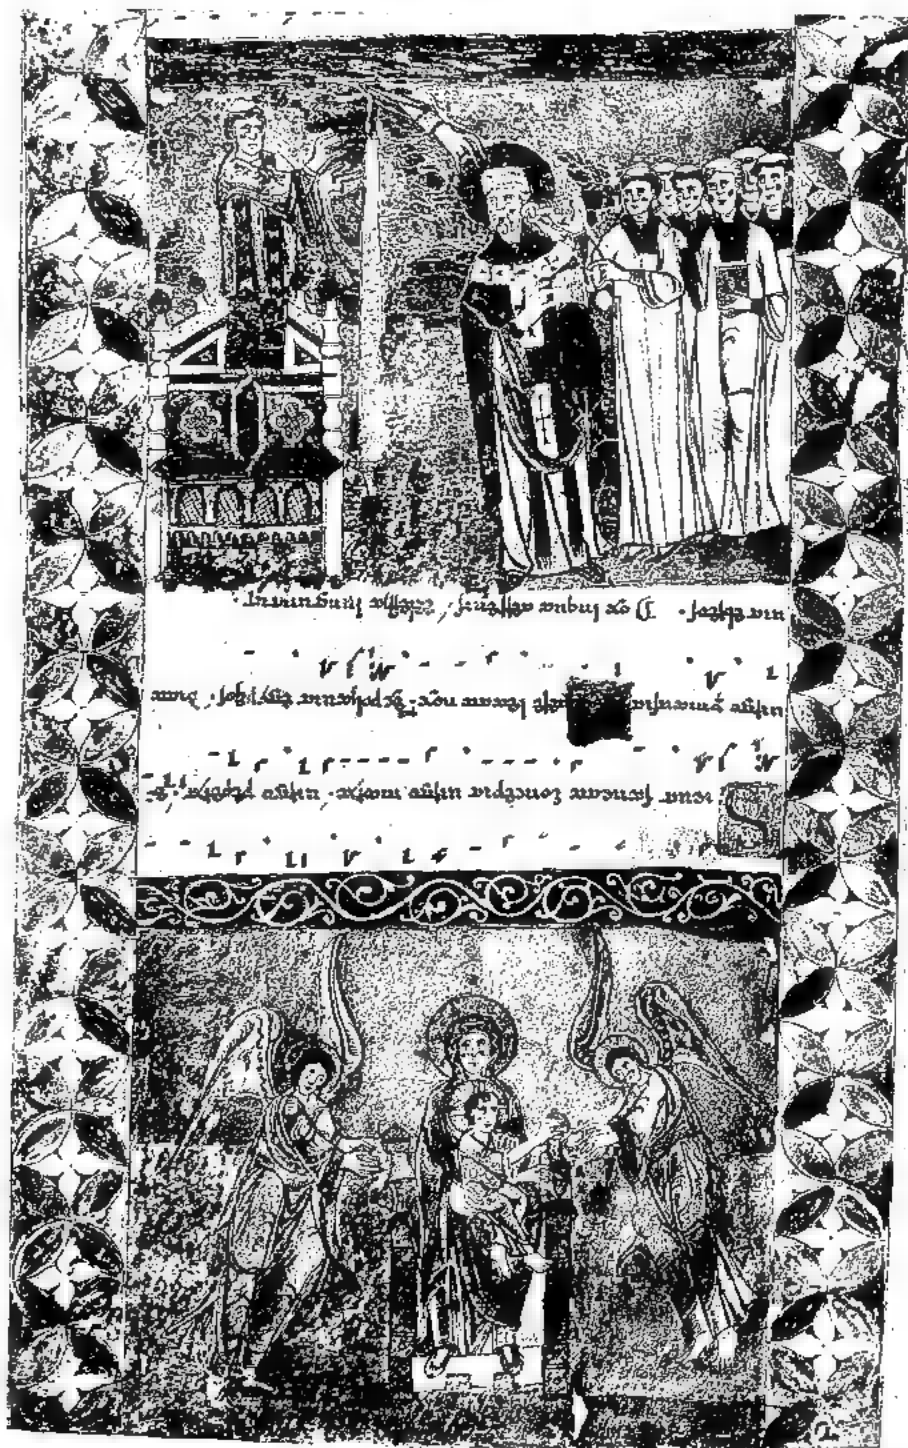 Sicut sancta concepit uirgo maria· uirgo peperit, &
uirgo permansit beata nox· que expoliauit egyptios· dita
uit ebreos· Nox in qua terrenis, celestia iunguntur·